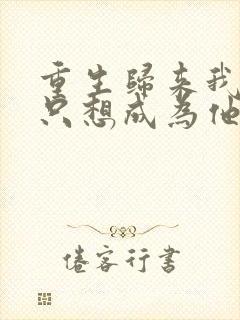 重生歸來我
只想成為他
倦客行書